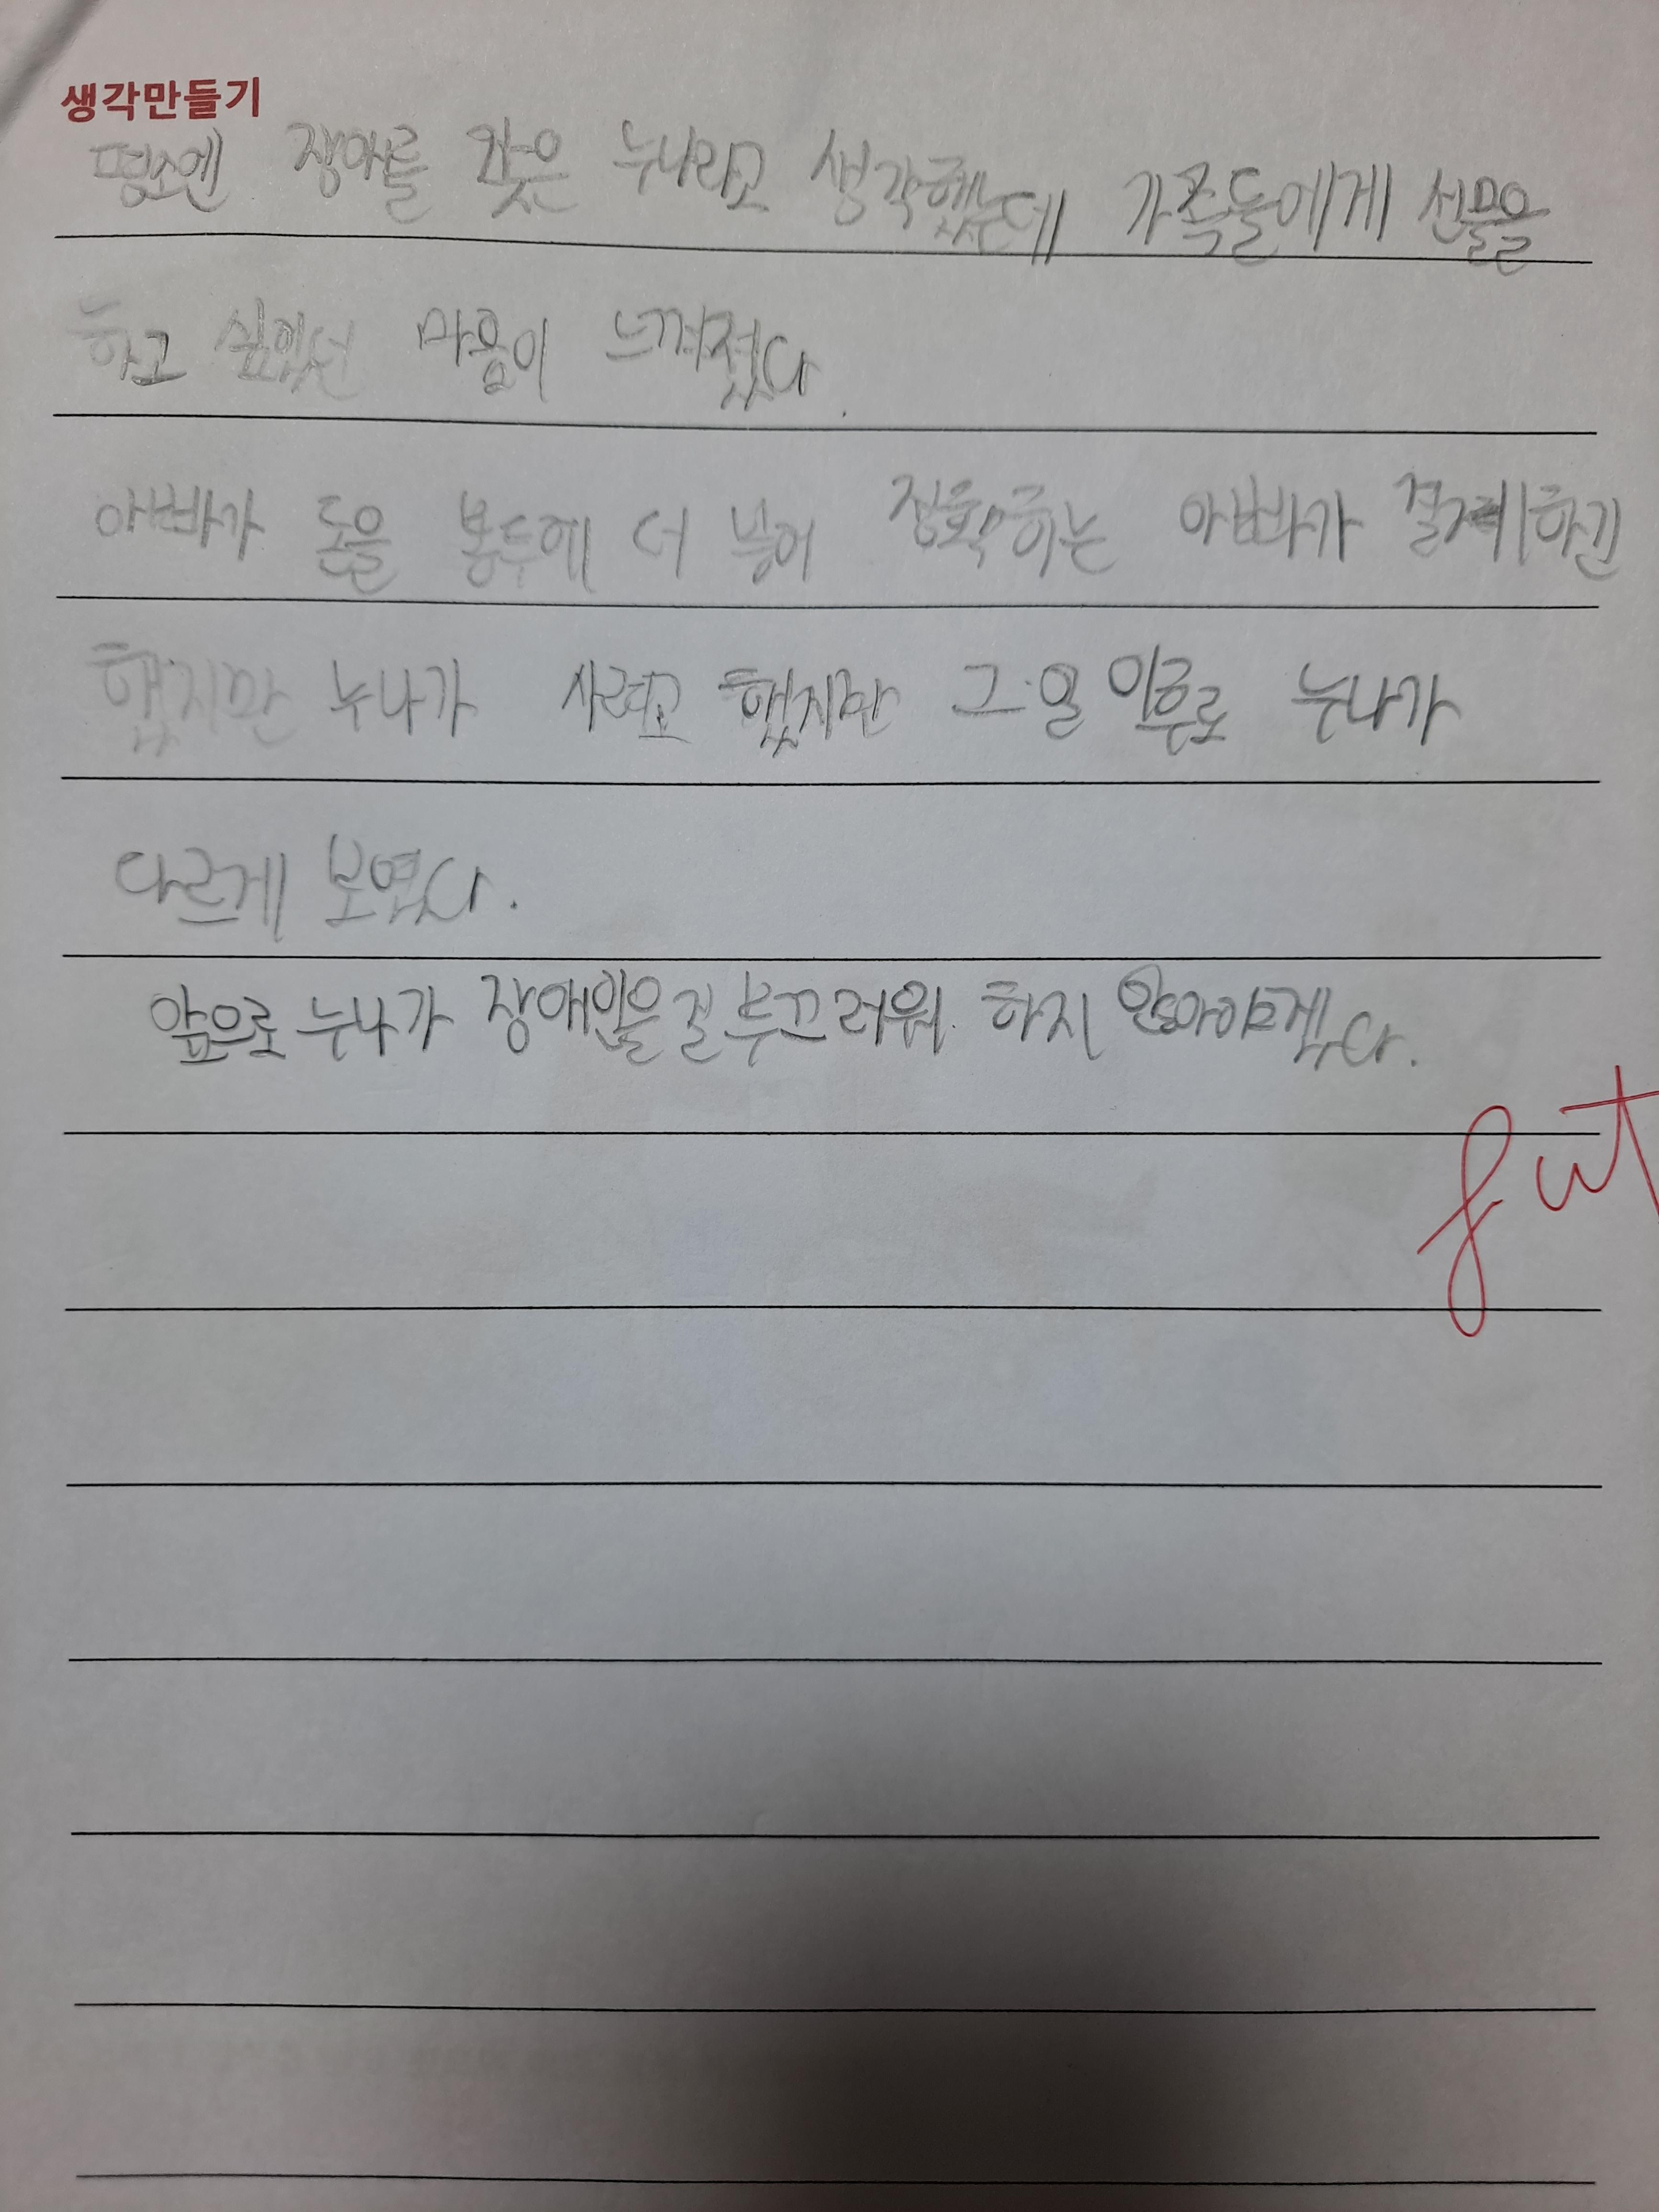 생각만들기
평소엔 장애를 갖은 누나라고 생각했는데 가족들에게 선물을
하고 싶었던 마음이 느껴졌다.
아빠가 돈을 봉투에 더 넣어 정확하는 아빠가 결제하긴
했지만 누나가 사려고 했지만 그 일 이후로 누나가
다르게 보였다.
앞으로 누나가 장애인을걸 부끄러워 하지 않아야겠다.